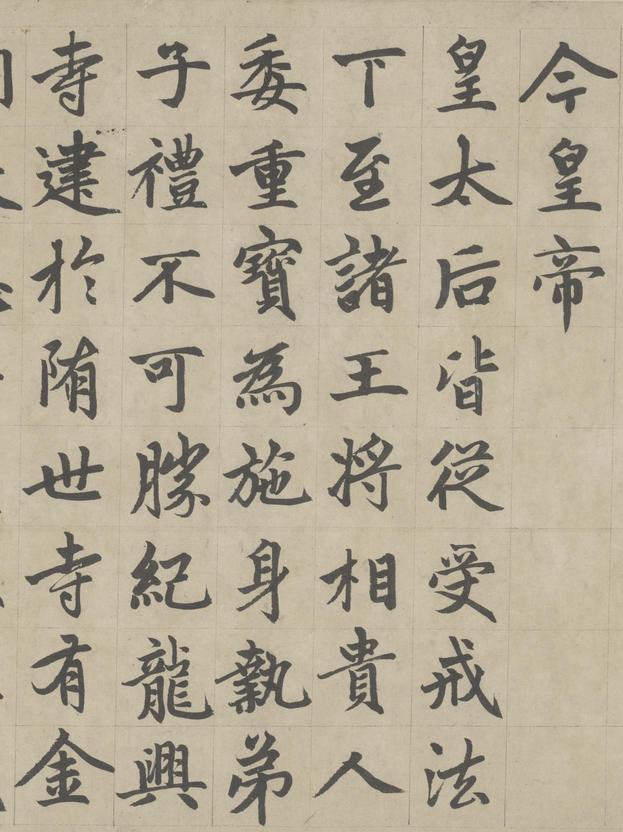 今皇帝
皇太后皆從受戒法
下至諸王將相貴人
委重寶為施身執弟
子禮不可勝紀龍興
寺建於隋世寺有金